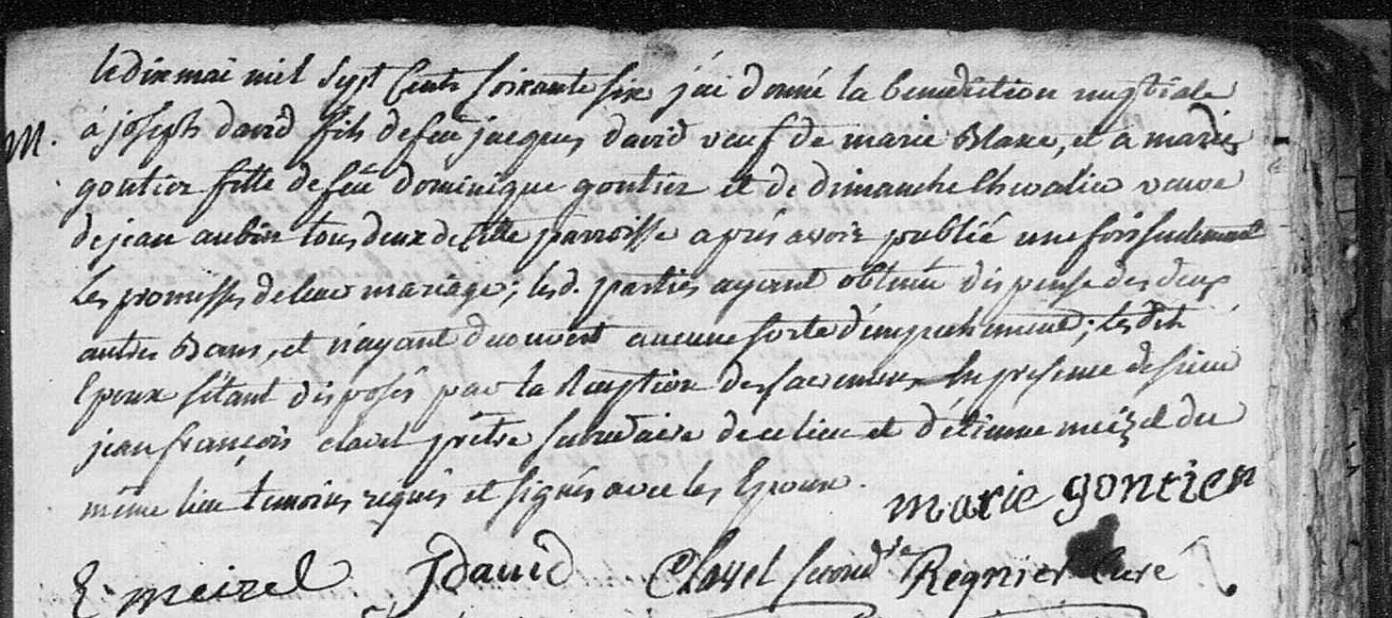 le dix mai mil sept Cents soixante six j'ai donné la benediction nuptiale
M. à joseph david fils de feu jacques david veuf de marie Blanc, et a marie
gontier fille de feu dominique gontier et de dimanche Chevalier veuve
de jean aubin tous deux de cette parroisse après avoir publié une fois seulement
les promesses de leur mariage; lesd. parties ayant obtenu dispense des deux
autres Bans, et n'ayant decouvert aucune sorte d'empechement; les dits
Epoux s'étant disposés par la Reception des sacremens, En presence de sieur
jean françois clavel prêtre secondaire de ce lieu et d'étienne meizel du
même lieu temoins requis et signés avec les Epoux.
marie gontier
E. meizel JDavid Clavel second.re Regnier Curé